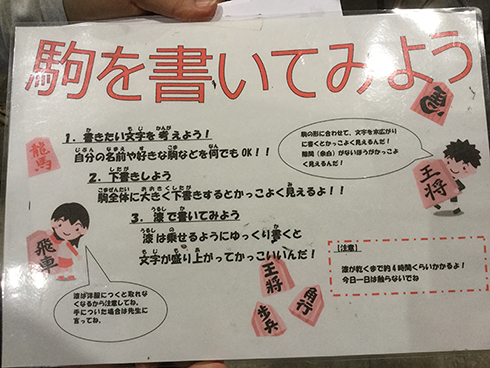 駒を書いてみよう
1．書きたい文字を考えよう！
自分の名前や好きな駒などを何でもOK！！
2．下書きしよう
駒全体に大きく下書きするとかっこよく見えるよ！！
3．漆で書いてみよう
漆は乗せるようにゆっくり書くと
文字が盛り上がってかっこいいんだ！
駒の形に合わせて、文字を末広がり
に書くとかっこよく見えるんだ！
隙間（余白）がないほうがかっこよ
く見えるんだ！
龍馬
飛車
王将
漆が洋服につくと取れな
くなるから注意してね。
手についた場合は先生に
言ってね。
王将
歩兵
角行
【注意】
漆が乾くまで約4時間くらいかかるよ！
今日一日は触らないでね